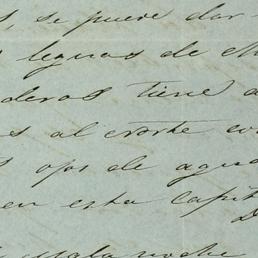 , se puede dar-
leguas de
deras tiene a
s al norte co
s ojos de agua
en esta capit
mala noche